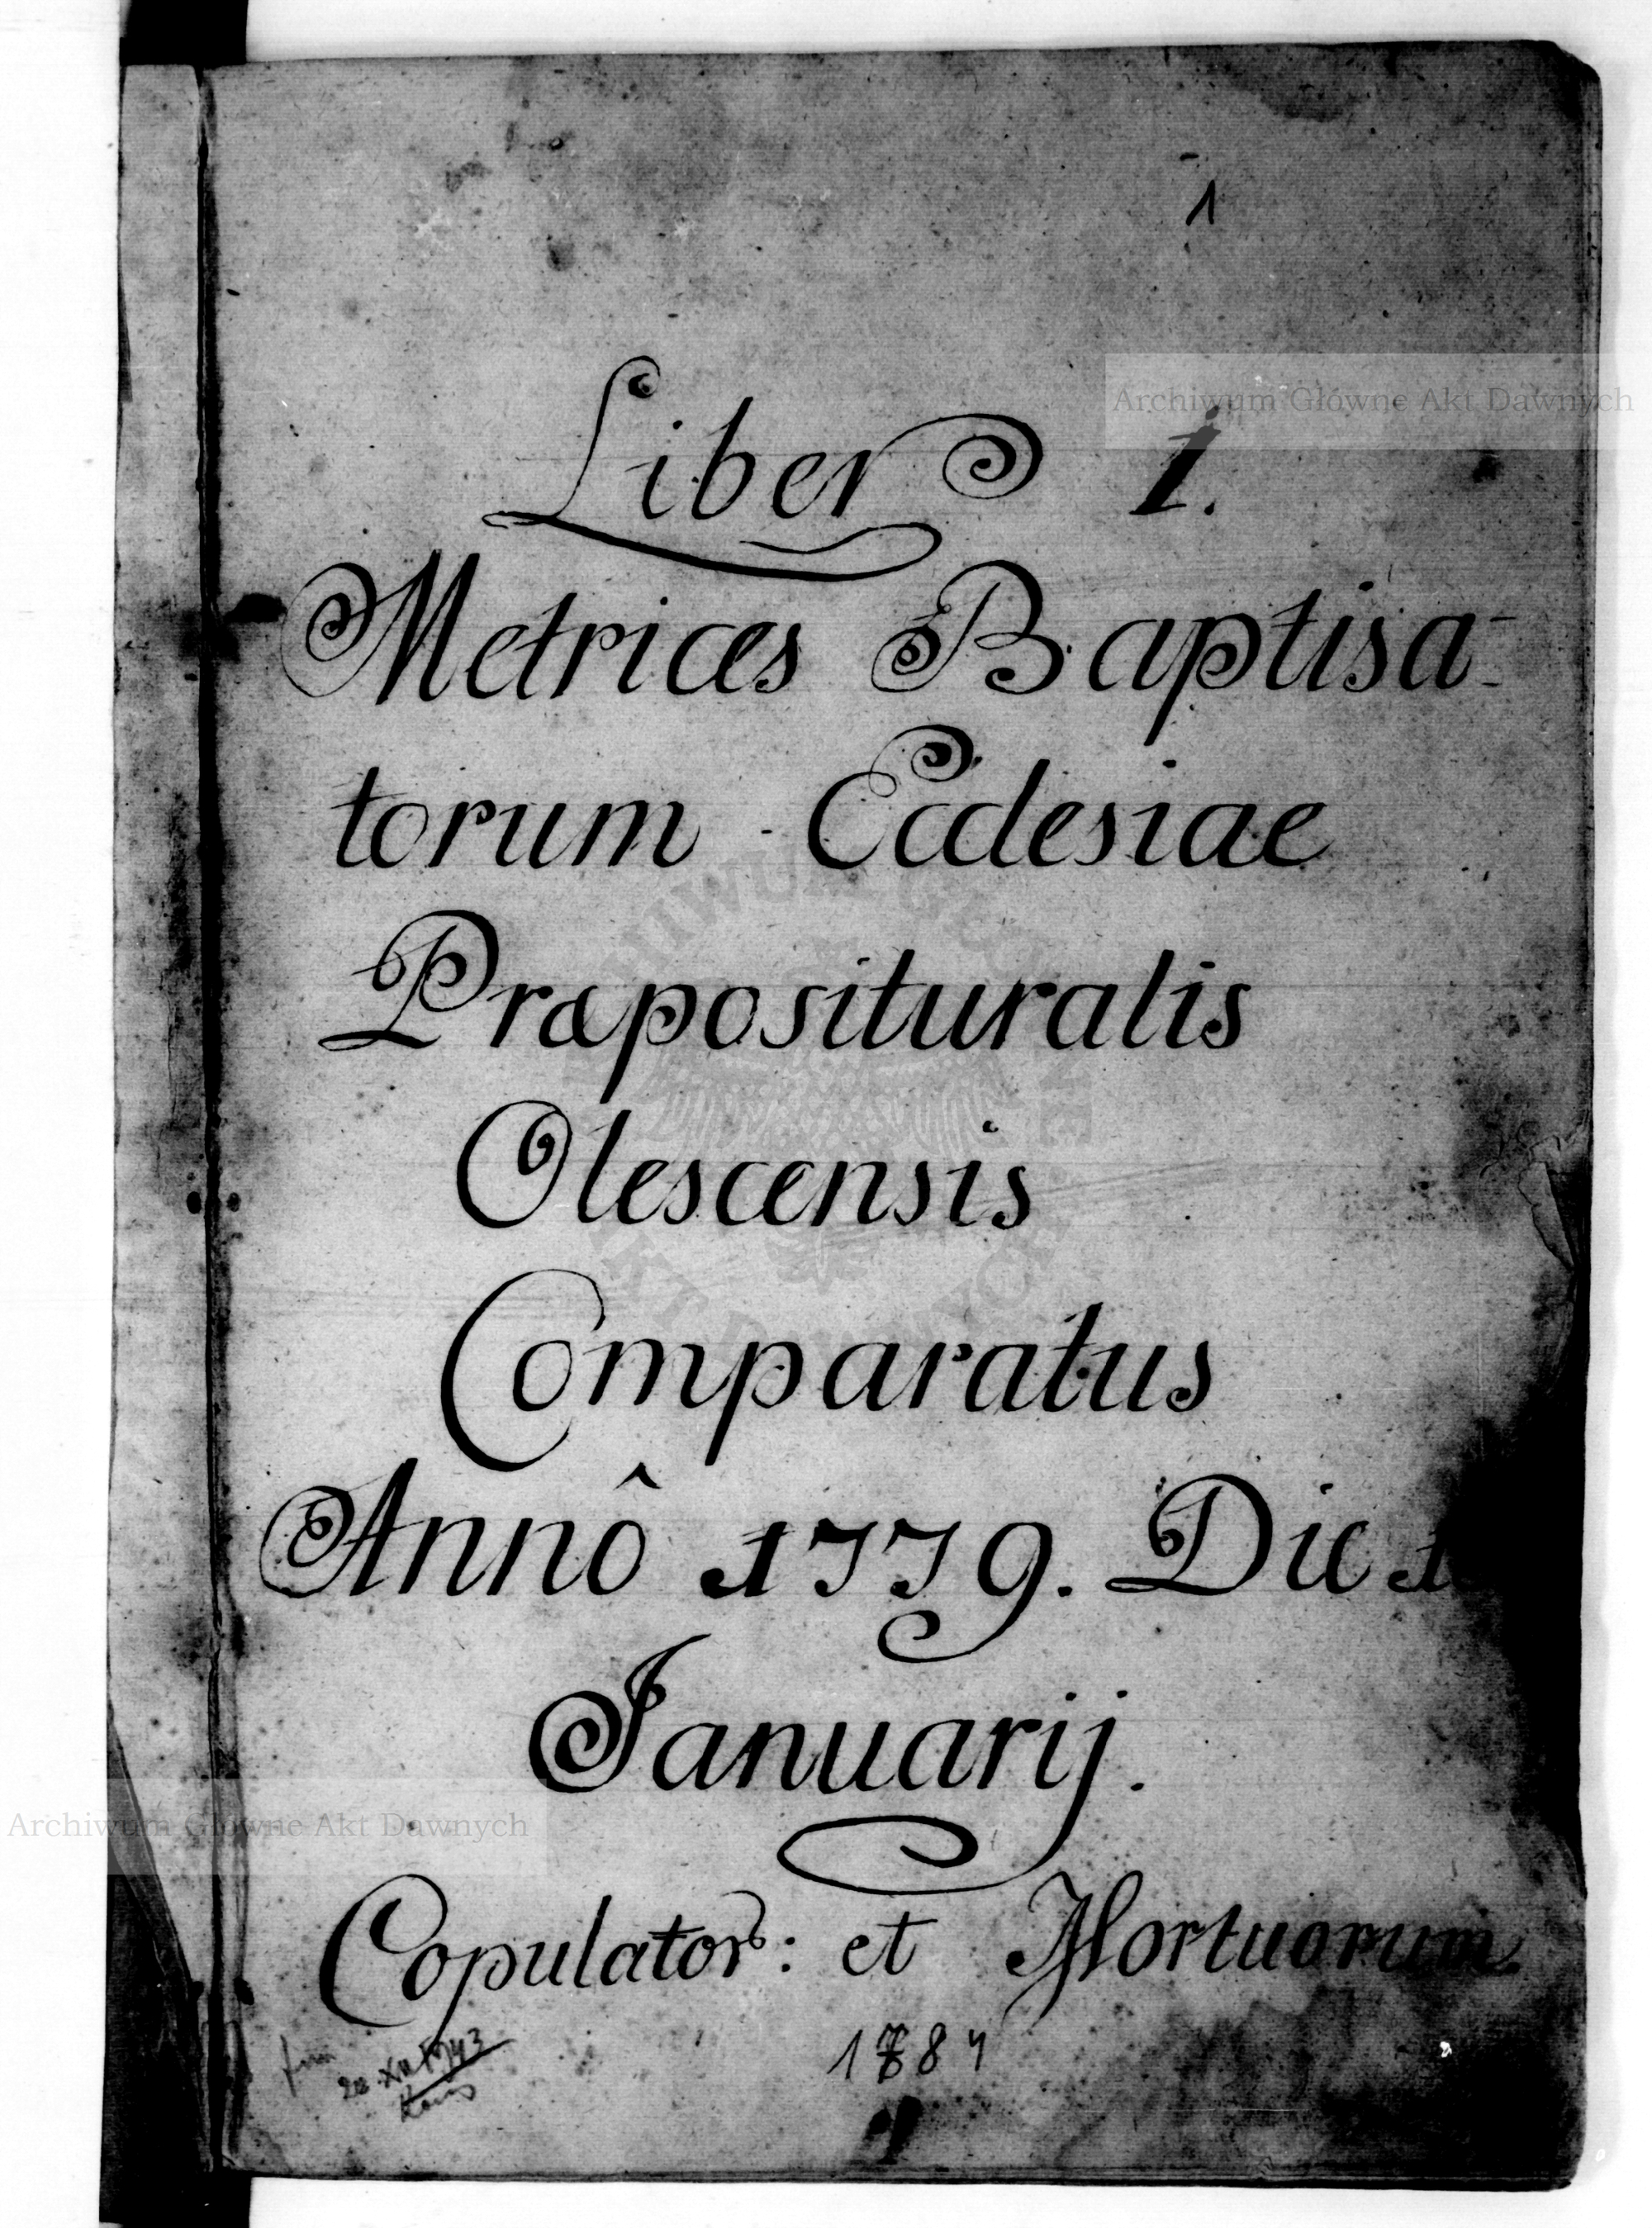 1
Archiwum Główne Akt Dawnych
Liber 1.
Metrices Baptisa-
torum Ecclesiae
Præposituralis
Olescensis
Comparatus
Annô 1779. Die 1
Januarij.
Archiwum Główne Akt Dawnych
Copulator: et Mortuorum
1784